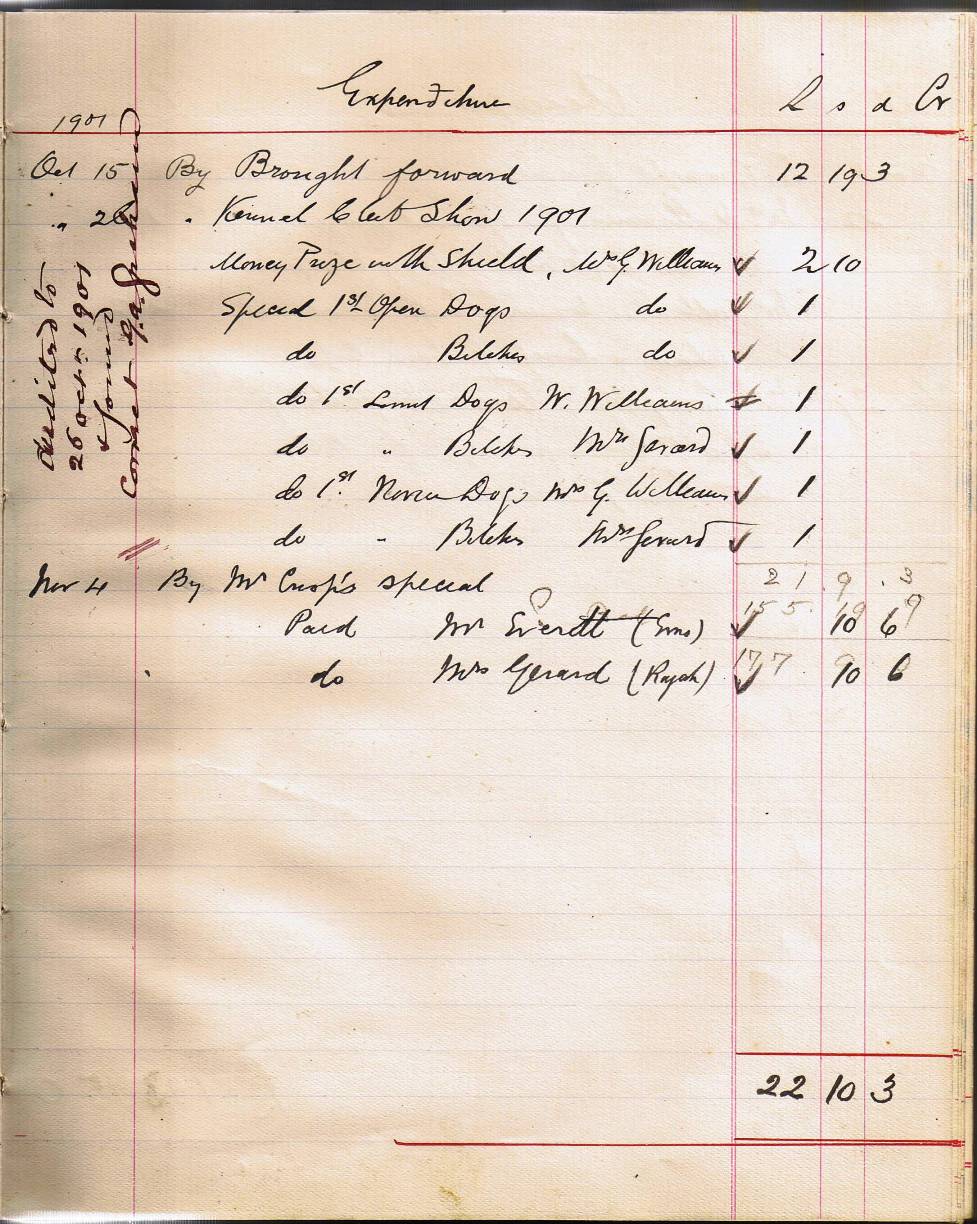 Expenditure £ s d Cr
1901
Oct 15 By Brought forward 12 19 3
" 26 " Kennel Club Show 1901
Money Prize with Shield, Mrs G. Williams ✓ 2 10
Special 1st Open Dogs do ✓ 1
do Bitches do ✓ 1
do 1st Limit Dogs W. Williams ✓ 1
do " Bitches Mrs Gerard ✓ 1
do 1st Novice Dogs Mrs G. Williams ✓ 1
do " Bitches Mrs Gerard ✓ 1
21 9 3
Nov 4 By Mr Crisp's special
Paid Mr Everett ✓ 10 6
do Mrs Gerard (Rajah) ✓ 10 6
22 10 3
Audited to
26 Octr 1901
& found
correct